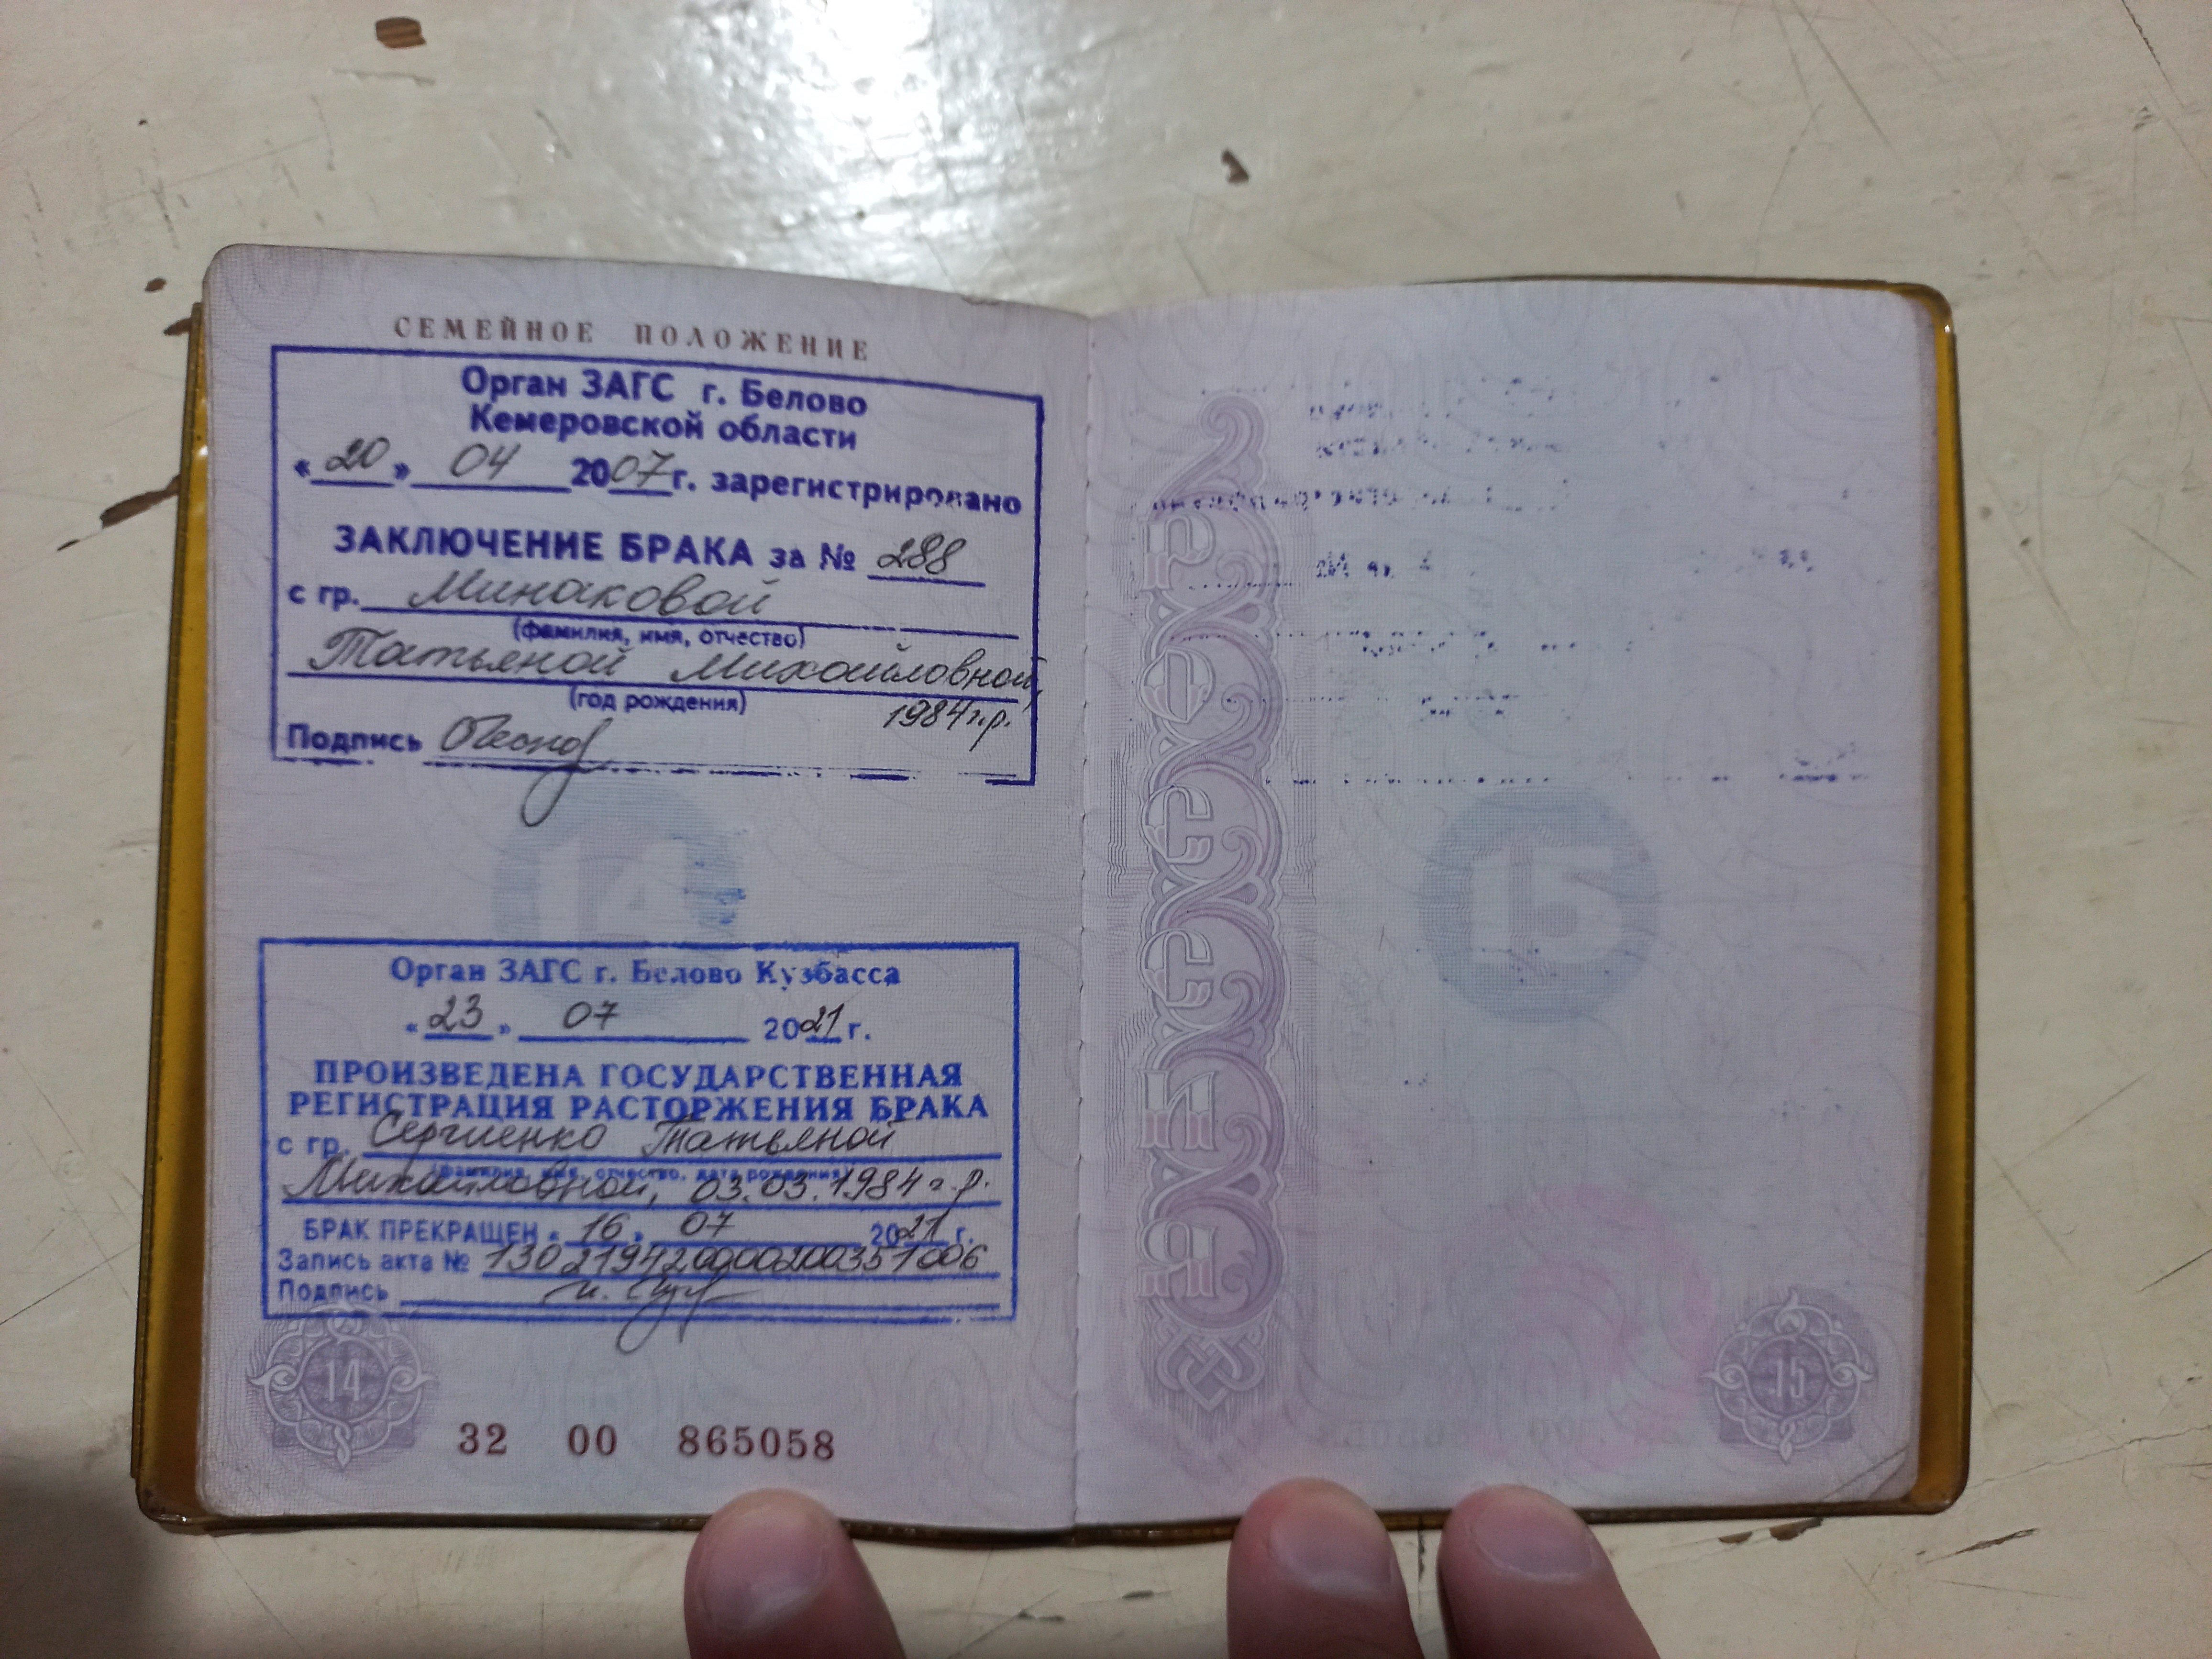 СЕМЕЙНОЕ ПОЛОЖЕНИЕ
Орган ЗАГС г. Белово
Кемеровской области
«20» 04 2007г. зарегистрировано
ЗАКЛЮЧЕНИЕ БРАКА за № 288
с гр. Минаковой
(фамилия, имя, отчество)
Татьяной Михайловной,
(год рождения)
1984 г.р.
Подпись
14
Орган ЗАГС г. Белово Кузбасса
«23» 07 2021 г.
ПРОИЗВЕДЕНА ГОСУДАРСТВЕННАЯ
РЕГИСТРАЦИЯ РАСТОРЖЕНИЯ БРАКА
с гр. Сергиенко Татьяной
(фамилия, имя, отчество, дата рождения)
Михайловной, 03.03.1984 г.р.
БРАК ПРЕКРАЩЕН «16» 07 2021 г.
Запись акта № 130219420000200351006
Подпись
14
32 00 865058
РОССИЯ
15
15